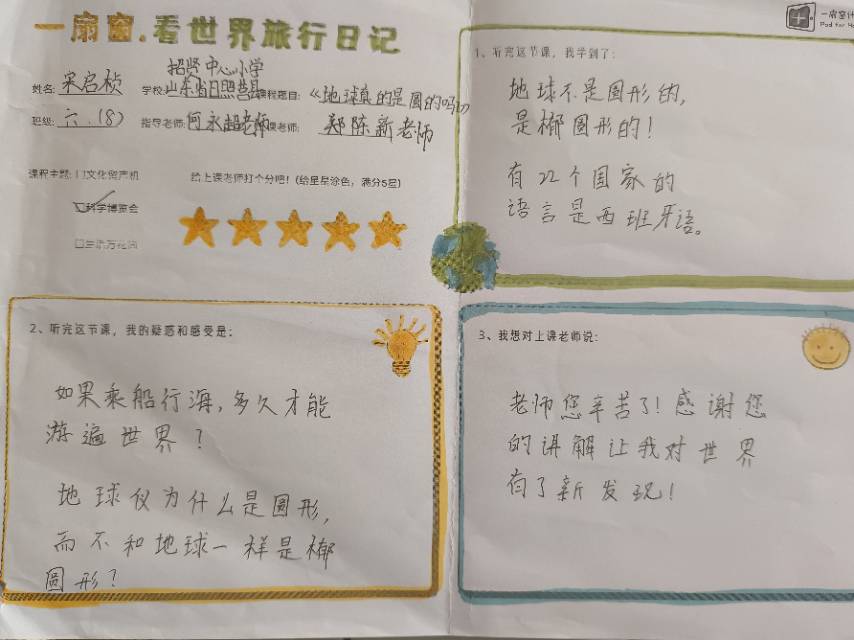 一扇窗.看世界旅行日记
一扇窗计
Pad for Ho
招贤中心小学
姓名: 宋启桢 学校: 山东省日照莒县 课程题目: 《地球真的是圆的吗》
班级: 六.(8) 指导老师: 何永超老师 授课老师: 郑陈新老师
课程主题: 口文化留声机
科学博览会
口生活万花筒
给上课老师打个分吧!(给星星涂色,满分5星)
1、听完这节课,我学到了:
地球不是圆形的,
是椭圆形的!
有22个国家的
语言是西班牙语。
2、听完这节课,我的疑惑和感受是:
如果乘船行海,多久才能
游遍世界?
地球仪为什么是圆形,
而不和地球一样是椭
圆形?
3、我想对上课老师说:
老师您辛苦了!感谢您
的讲解让我对世界
有了新发现!